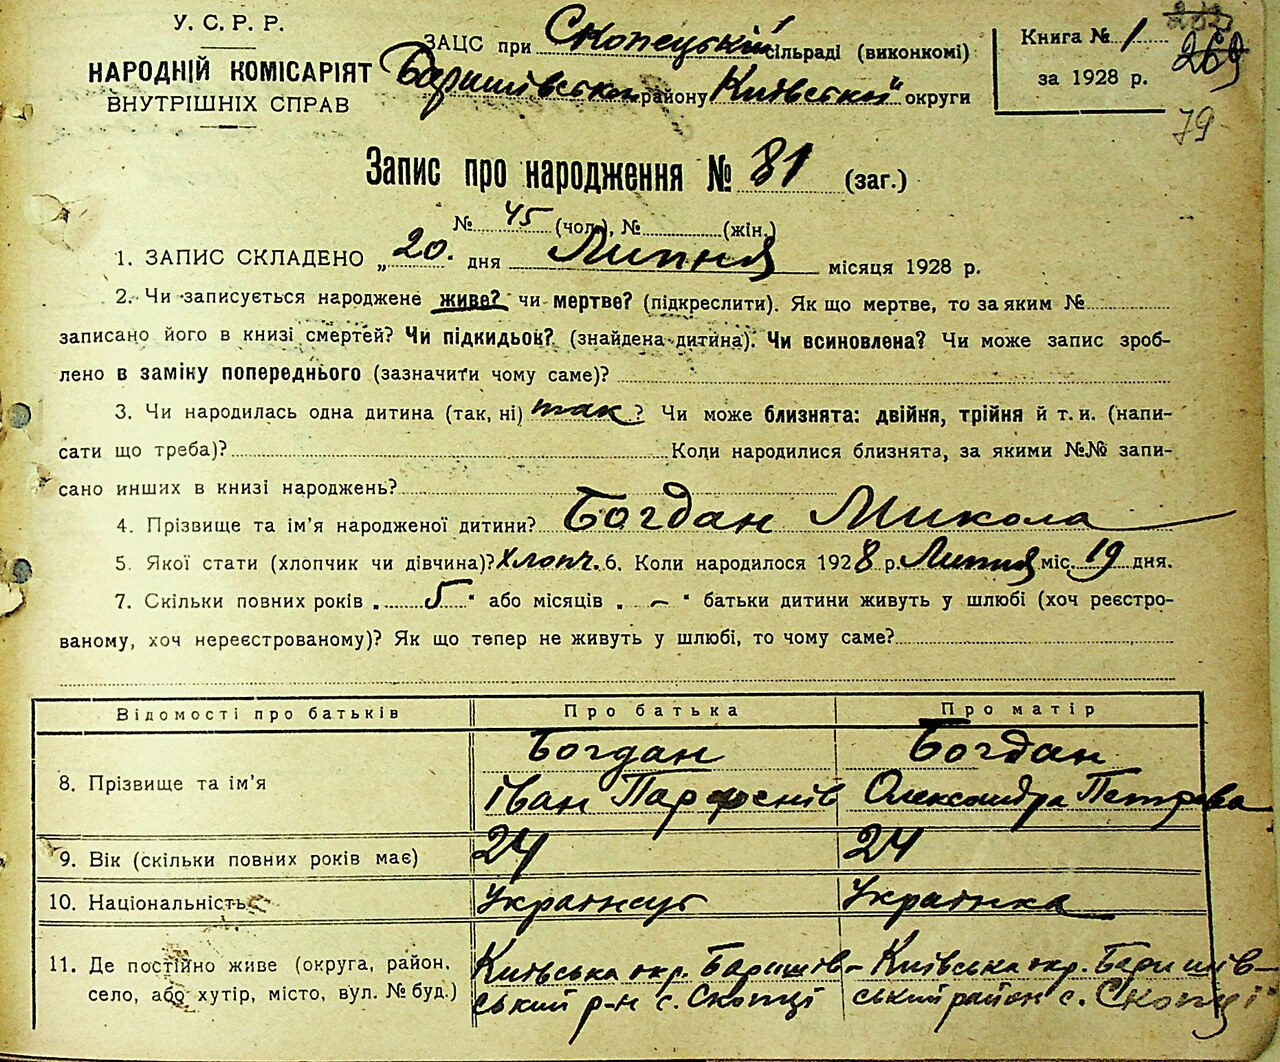 У. С. Р. Р.
НАРОДНІЙ КОМІСАРІЯТ
ВНУТРІШНІХ СПРАВ
ЗАЦС при Скопецькій сільраді (виконкомі)
Баришівської району Київської округи
Книга № 1
за 1928 р.
269
79
Запис про народження № 81 (заг.)
№ 45 (чол.), № (жін.)
1. ЗАПИС СКЛАДЕНО „20. дня Липня місяця 1928 р.
2. Чи записується народжене живе? чи мертве? (підкреслити). Як що мертве, то за яким №
записано його в книзі смертей? Чи підкидьок? (знайдена дитина). Чи всиновлена? Чи може запис зроб-
лено в заміну попереднього (зазначити чому саме)?
3. Чи народилась одна дитина (так, ні) так ? Чи може близнята: двійня, трійня й т. и. (напи-
сати що треба)? Коли народилися близнята, за якими №№ запи-
сано инших в книзі народжень?
4. Прізвище та ім'я народженої дитини? Богдан Микола
5. Якої стати (хлопчик чи дівчина)? Хлопч. 6. Коли народилося 1928 р. Липня міс. 19 дня.
7. Скільки повних років „ 5 " або місяців „ – " батьки дитини живуть у шлюбі (хоч реєстро-
ваному, хоч нереєстрованому)? Як що тепер не живуть у шлюбі, то чому саме?
Відомості про батьків Про батька Про матір
8. Прізвище та ім'я
Богдан
Іван Парфенів
Богдан
Олександра Петрова
9. Вік (скільки повних років має) 24 24
10. Національність Українець Українка
11. Де постійно живе (округа, район,
село, або хутір, місто, вул. № буд.)
Київська окр. Баришів-
ський р-н с. Скопці
Київська окр. Баришів-
ський район с. Скопці